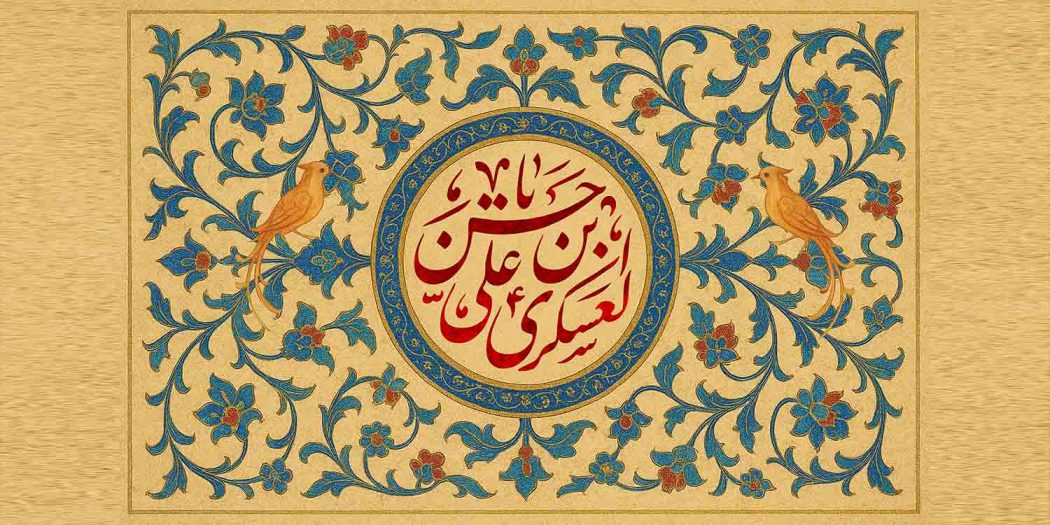 یا حسن بن علی العسکری ع